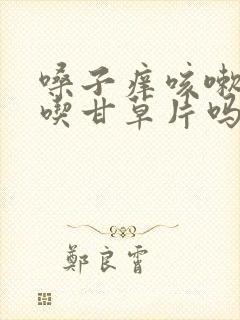 嗓子痒咳嗽
喫甘草片吗
鄭良霄